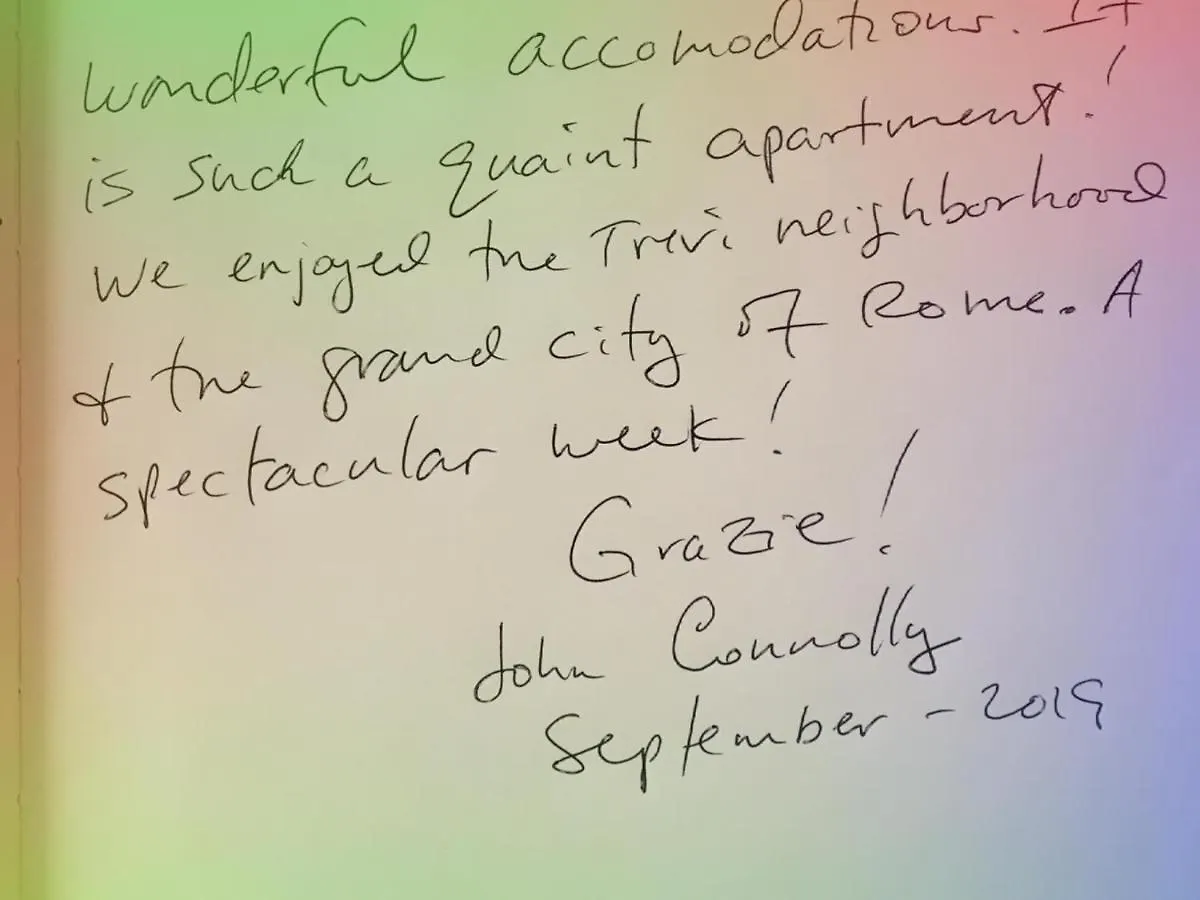 wonderful accomodations. It
is such a quaint apartment!
We enjoyed the Trevi neighborhood
& the grand city of Rome. A
spectacular week!
Grazie!
John Connolly
September - 2019